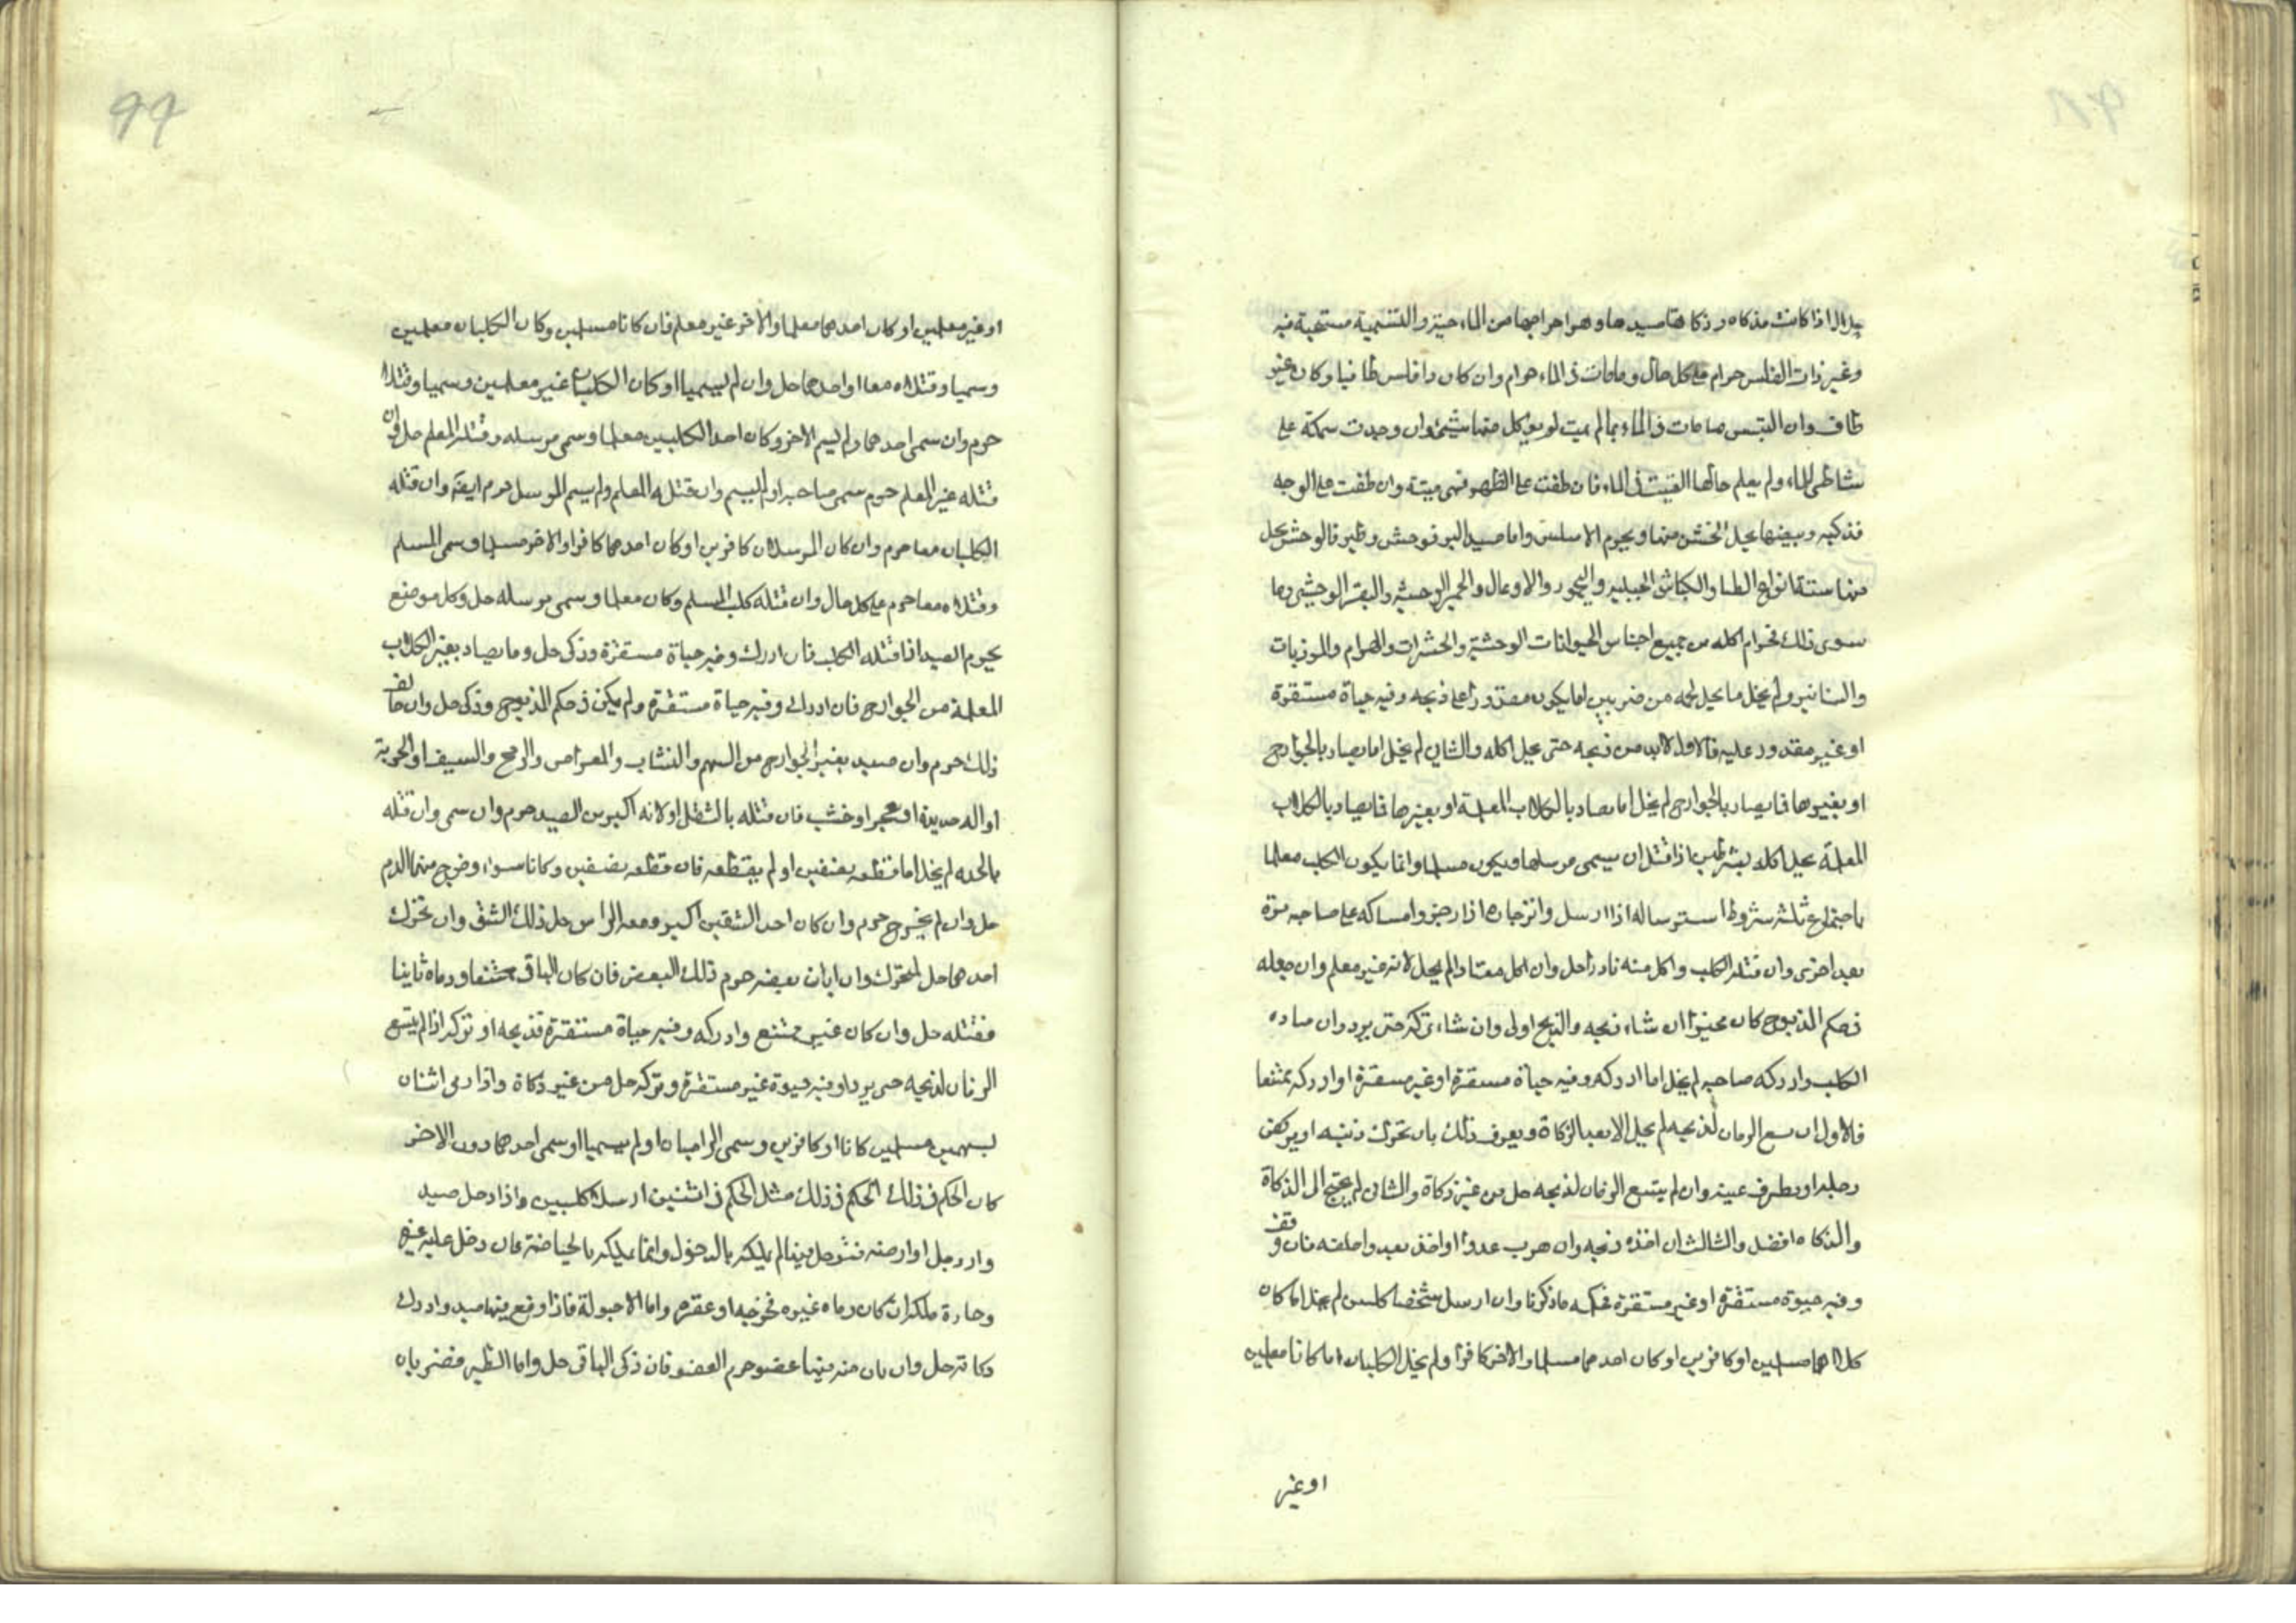 حلالا اذا كانت مذكاة وذكاتها صيدها وهو اخراجها من الماء حية والتسمية مستحبة فيه
وغير ذات الفلس حرام على كل حال وما مات في الماء حرام وان كان ذا فلس طافيا وكان غير
طاف وان التبس ما مات في الماء بما لم يمت لم يوكل منها شئ وان وجدت سمكة على
شاطى الماء ولم يعلم حالها القيت في الماء فان طفت على الظهر فهى ميتة وان طفت على الوجه
فذكية وبيضها يحل الخشن منها ويحرم الاملس واما صيد البر فوحش وطير فالوحش يحل
منها ستة انواع الظبا والكباش الجبلية واليحمور والاوعال والحمير الوحشية والبقر الوحشى وما
سوى ذلك فحرام اكله من جميع اجناس الحيوانات الوحشية والحشرات والهوام والموذيات
والسنانير ولم يخل ما يحل لحمه من ضربين اما يكون مقدورا على ذبحه وفيه حياة مستقرة
او غير مقدور عليه فالاول لابد من ذبحه حتى يحل اكله والثانى لم يخل اما يصاد بالجوارح
او بغيرها فما يصاد بالجوارح لم يخل اما يصاد بالكلاب المعلمة او بغيرها فما يصاد بالكلاب
المعلمة يحل اكله بشرطين اذا قتل ان يسمى مرسلها ويكون مسلما وانما يكون الكلب معلما
باجتماع ثلثة شروط استرساله اذا ارسل وانزجاره اذا زجر وامساكه على صاحبه مرة
بعد اخرى وان قتله الكلب واكل منه نادرا حل وان اكل معتادا لم يحل لانه غير معلم وان جعله
في حكم المذبوح كان مخيرا ان شاء ذبحه والذبح اولى وان شاء تركه حتى يبرد وان صاده
الكلب وادركه صاحبه لم يخل اما ادركه وفيه حياة مستقرة او غير مستقرة او ادركه ممتنعا
فالاول ان يسع الزمان لذبحه لم يحل الا بعد الزكاة ويعرف ذلك بان تحرك ذنبه او يركض
رجله او يطرف عينه وان لم يتسع الزمان لذبحه حل من غير زكاة والثانى لم يحتج الى الذكاة
والذكاة افضل والثالث ان اخذه وذبحه وان هرب عدوا واخذ بعد واحلقه فان وقف
وفيه حيوة مستقرة او غير مستقرة فحكمه ما ذكرنا وان ارسل شخصا كلبين لم يخل اما كان
كلاهما مسلمين او كافرين او كان احدهما مسلما والاخر كافرا ولم يخل الكلبان اما كانا معلمين
او غير
99
او غير معلمين او كان احدهما معلما والاخر غير معلم فان كانا مسلمين وكان الكلبان معلمين
وسميا وقتلاه معا او احدهما حل وان لم يسميا او كان الكلبان غير معلمين وسميا وقتلا
حرم وان سمى احدهما ولم يسم الاخر وكان احد الكلبين معلما وسمى مرسله وقتله المعلم حل وان
قتله غير المعلم حرم سمى صاحبه او لم يسم وان قتله المعلم ولم يسم المرسل حرم ايضا وان قتله
الكلبان معا حرم وان كان المرسلان كافرين او كان احدهما كافرا والاخر مسلما وسمى المسلم
وقتلاه معا حرم على كل حال وان قتله كلب المسلم وكان معلما وسمى مرسله حل وكل موضع
يحرم الصيد اذا قتله الكلب فان ادرك وفيه حياة مستقرة وذكى حل وما يصاد بغير الكلاب
المعلمة من الجوارح فان ادرك وفيه حياة مستقرة ولم يكن في حكم المذبوح وذكى حل وان خالف
ذلك حرم وان صيد بغير الجوارح من السهم والنشاب والمعراض والرمح والسيف او الحربة
او الة حديدة او حجر او خشب فان قتله بالثقل او لانه اكبر من الصيد حرم وان سمى وان قتله
بالحدة لم يخل اما قطعه بنصفين او لم يقطعه فان قطعه بنصفين وكانا سواء وخرج منهما الدم
حل وان لم يخرج حرم وان كان احد الشقين اكبر ومعه الراس حل ذلك الشق وان تحرك
احدهما حل المتحرك وان ابان بعضه حرم ذلك البعض فان كان الباقى ممتنعا ورماه ثانيا
فقتله حل وان كان غير ممتنع وادركه وفيه حياة مستقرة فذبحه او تركه اذا لم يتسع
الزمان لذبحه حتى يبرد او فيه حيوة غير مستقرة وتركه حل من غير ذكاة واذا رمى اثنان
بسهمين مسلمين كانا او كافرين وسمى الراميان او لم يسميا او سمى احدهما دون الاخر
كان الحكم في ذلك الحكم في ذلك مثل الحكم في اثنين ارسلا كلبين واذا دخل صيد
دار رجل او ارضه فتوحل فيها لم يملكه بالدخول وانما يملكه بالحيازة فان دخل عليه غيره
وحازه ملكه ان كان رماه غيره فجرحه او عقره واما الاحبولة فاذا وقع فيها صيد وادرك
ذكاته حل وان بان منه فيها عضو حرم العضو فان ذكى الباقى حل واما الطير فضربان